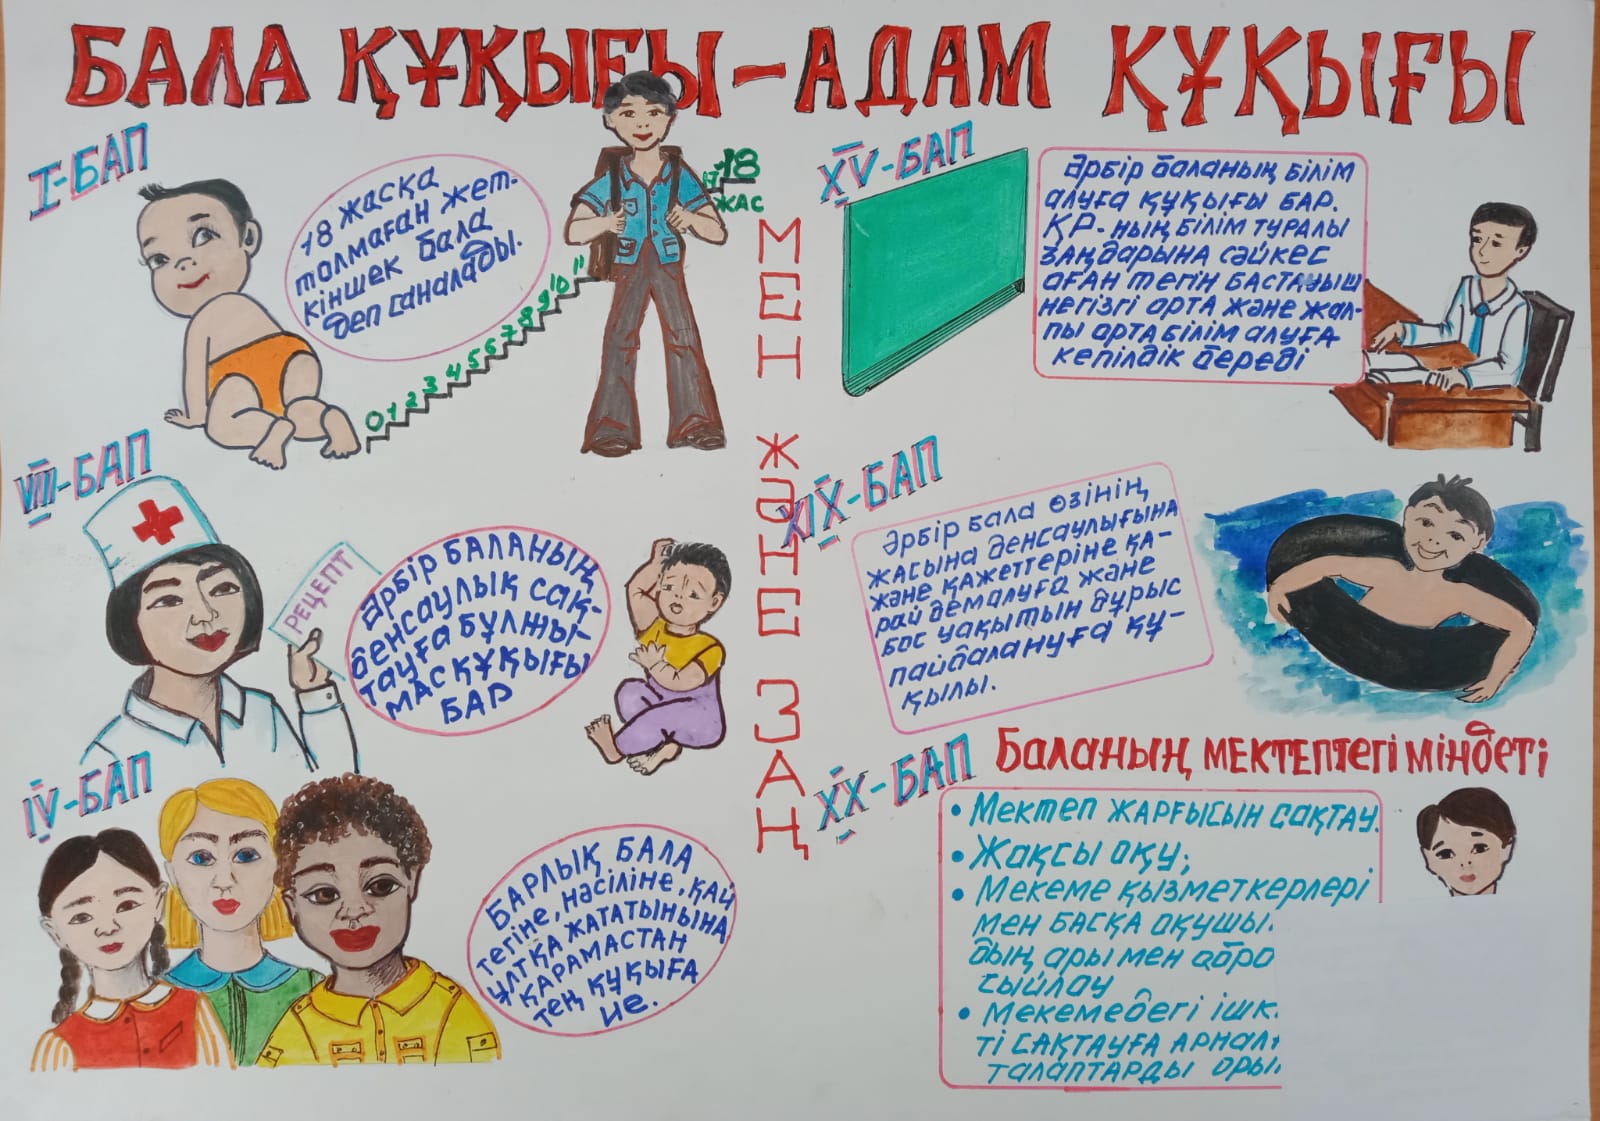 БАЛА ҚҰҚЫҒЫ – АДАМ ҚҰҚЫҒЫ
I-БАП
18 жасқа
толмаған жет-
кіншек бала
деп саналады.
0 1 2 3 4 5 6 7 8 9 10 11
17 18
ЖАС
VIII-БАП
РЕЦЕПТ
Әрбір БАЛАНЫҢ
денсаулық сақ-
тауға бұлжы-
мас құқығы
БАР
IV-БАП
БАРЛЫҚ БАЛА
тегіне, нәсіліне, қай
ұлтқа жататынына
қарамастан
тең құқыға
ие.
МЕН ЖӘНЕ ЗАҢ
XV-БАП
Әрбір баланың білім
алуға құқығы БАР.
ҚР-ның білім туралы
заңдарына сәйкес
оған тегін бастауыш
негізгі орта және жал-
пы орта білім алуға
кепілдік береді
XIX-БАП
Әрбір бала өзінің
жасына денсаулығына
және қажеттеріне қа-
рай демалуға және
бос уақытын дұрыс
пайдалануға құ-
қылы.
XX-БАП
Баланың мектептегі міндеті
• Мектеп жарғысын сақтау.
• Жақсы оқу;
• Мекеме қызметкерлері
мен басқа оқушы.
дың ары мен абро
сыйлау
• Мекемедегі ішк.
ті сақтауға арнал
талаптарды оры.